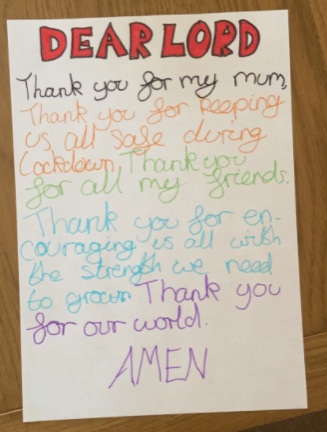 DEAR LORD
Thank you for my mum,
Thank you for keeping
us all safe during
Lockdown, Thank you
for all my friends.
Thank you for en-
couraging us all with
the strength we need
to grown Thank you
for our world.
AMEN